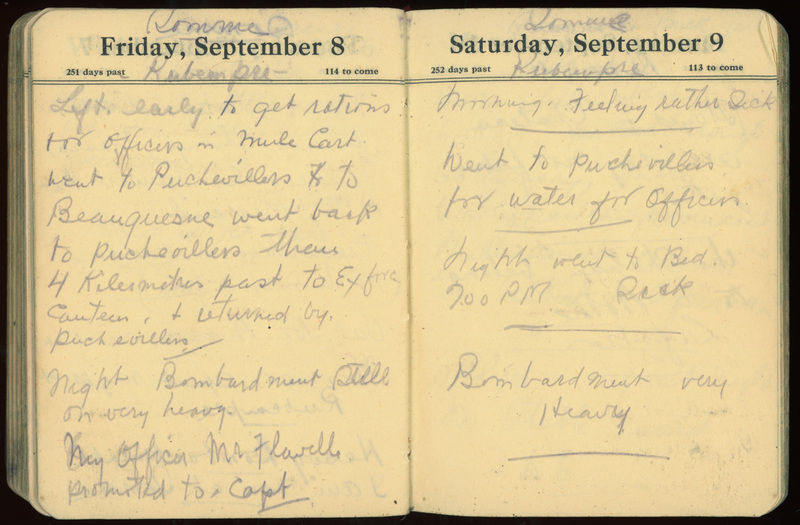 Somme
Friday, September 8
251 days past 114 to come
Rubempre -
Left early to get rations
for officers in Mule Cart
went to Puchevillers & to
Beauquesne went back
to Puchevillers then
4 Kilosmitres past to Ex force
Canteen, & returned by
Puchevillers
Night Bombardment Still
on very heavy
My Officer Mr Flavelle
promoted to Capt
Somme
Saturday, September 9
252 days past 113 to come
Rubempre
Morning. Feeling rather Sick
Went to Puchevillers
for water for Officers
Night went to Bed.
7.00 PM Sick
Bombardment very
Heavy